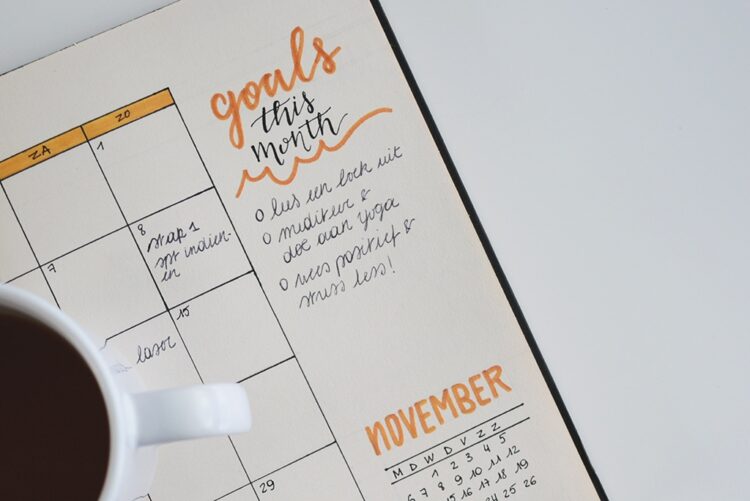 goals
this
month
ZA
ZO
1
7
8
stap 1
spt indien-
en
15
laser
29
o lees een boek uit
o mediteer &
doe aan yoga
o wees positief &
stress less!
NOVEMBER
M D W D V Z Z
1 2 3 4 5
6 7 8 9 10 11 12
15 16 17 18 19
24 25 26